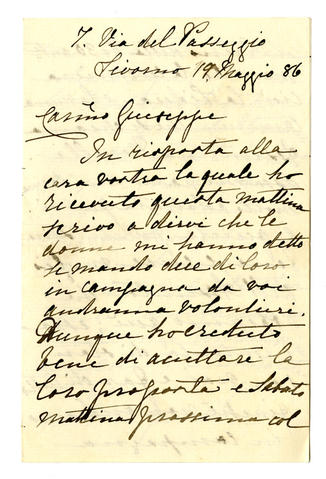 7. Via del Passeggio
Livorno 19 Maggio 86
Carino Giuseppe
In risposta alla
cara vostra la quale ho
ricevuto questa mattina
scrivo a dirvi che le
donne mi hanno detto
se mando due di loro
in campagna da voi
andranno volontieri.
Dunque ho creduto
bene di accettare la
loro proposta e Sabato
mattina prossima col